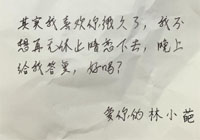 其实我喜欢你很久了，我不
想再无休止暗恋下去，晚上
给我答案，好吗？
爱你的林小葩